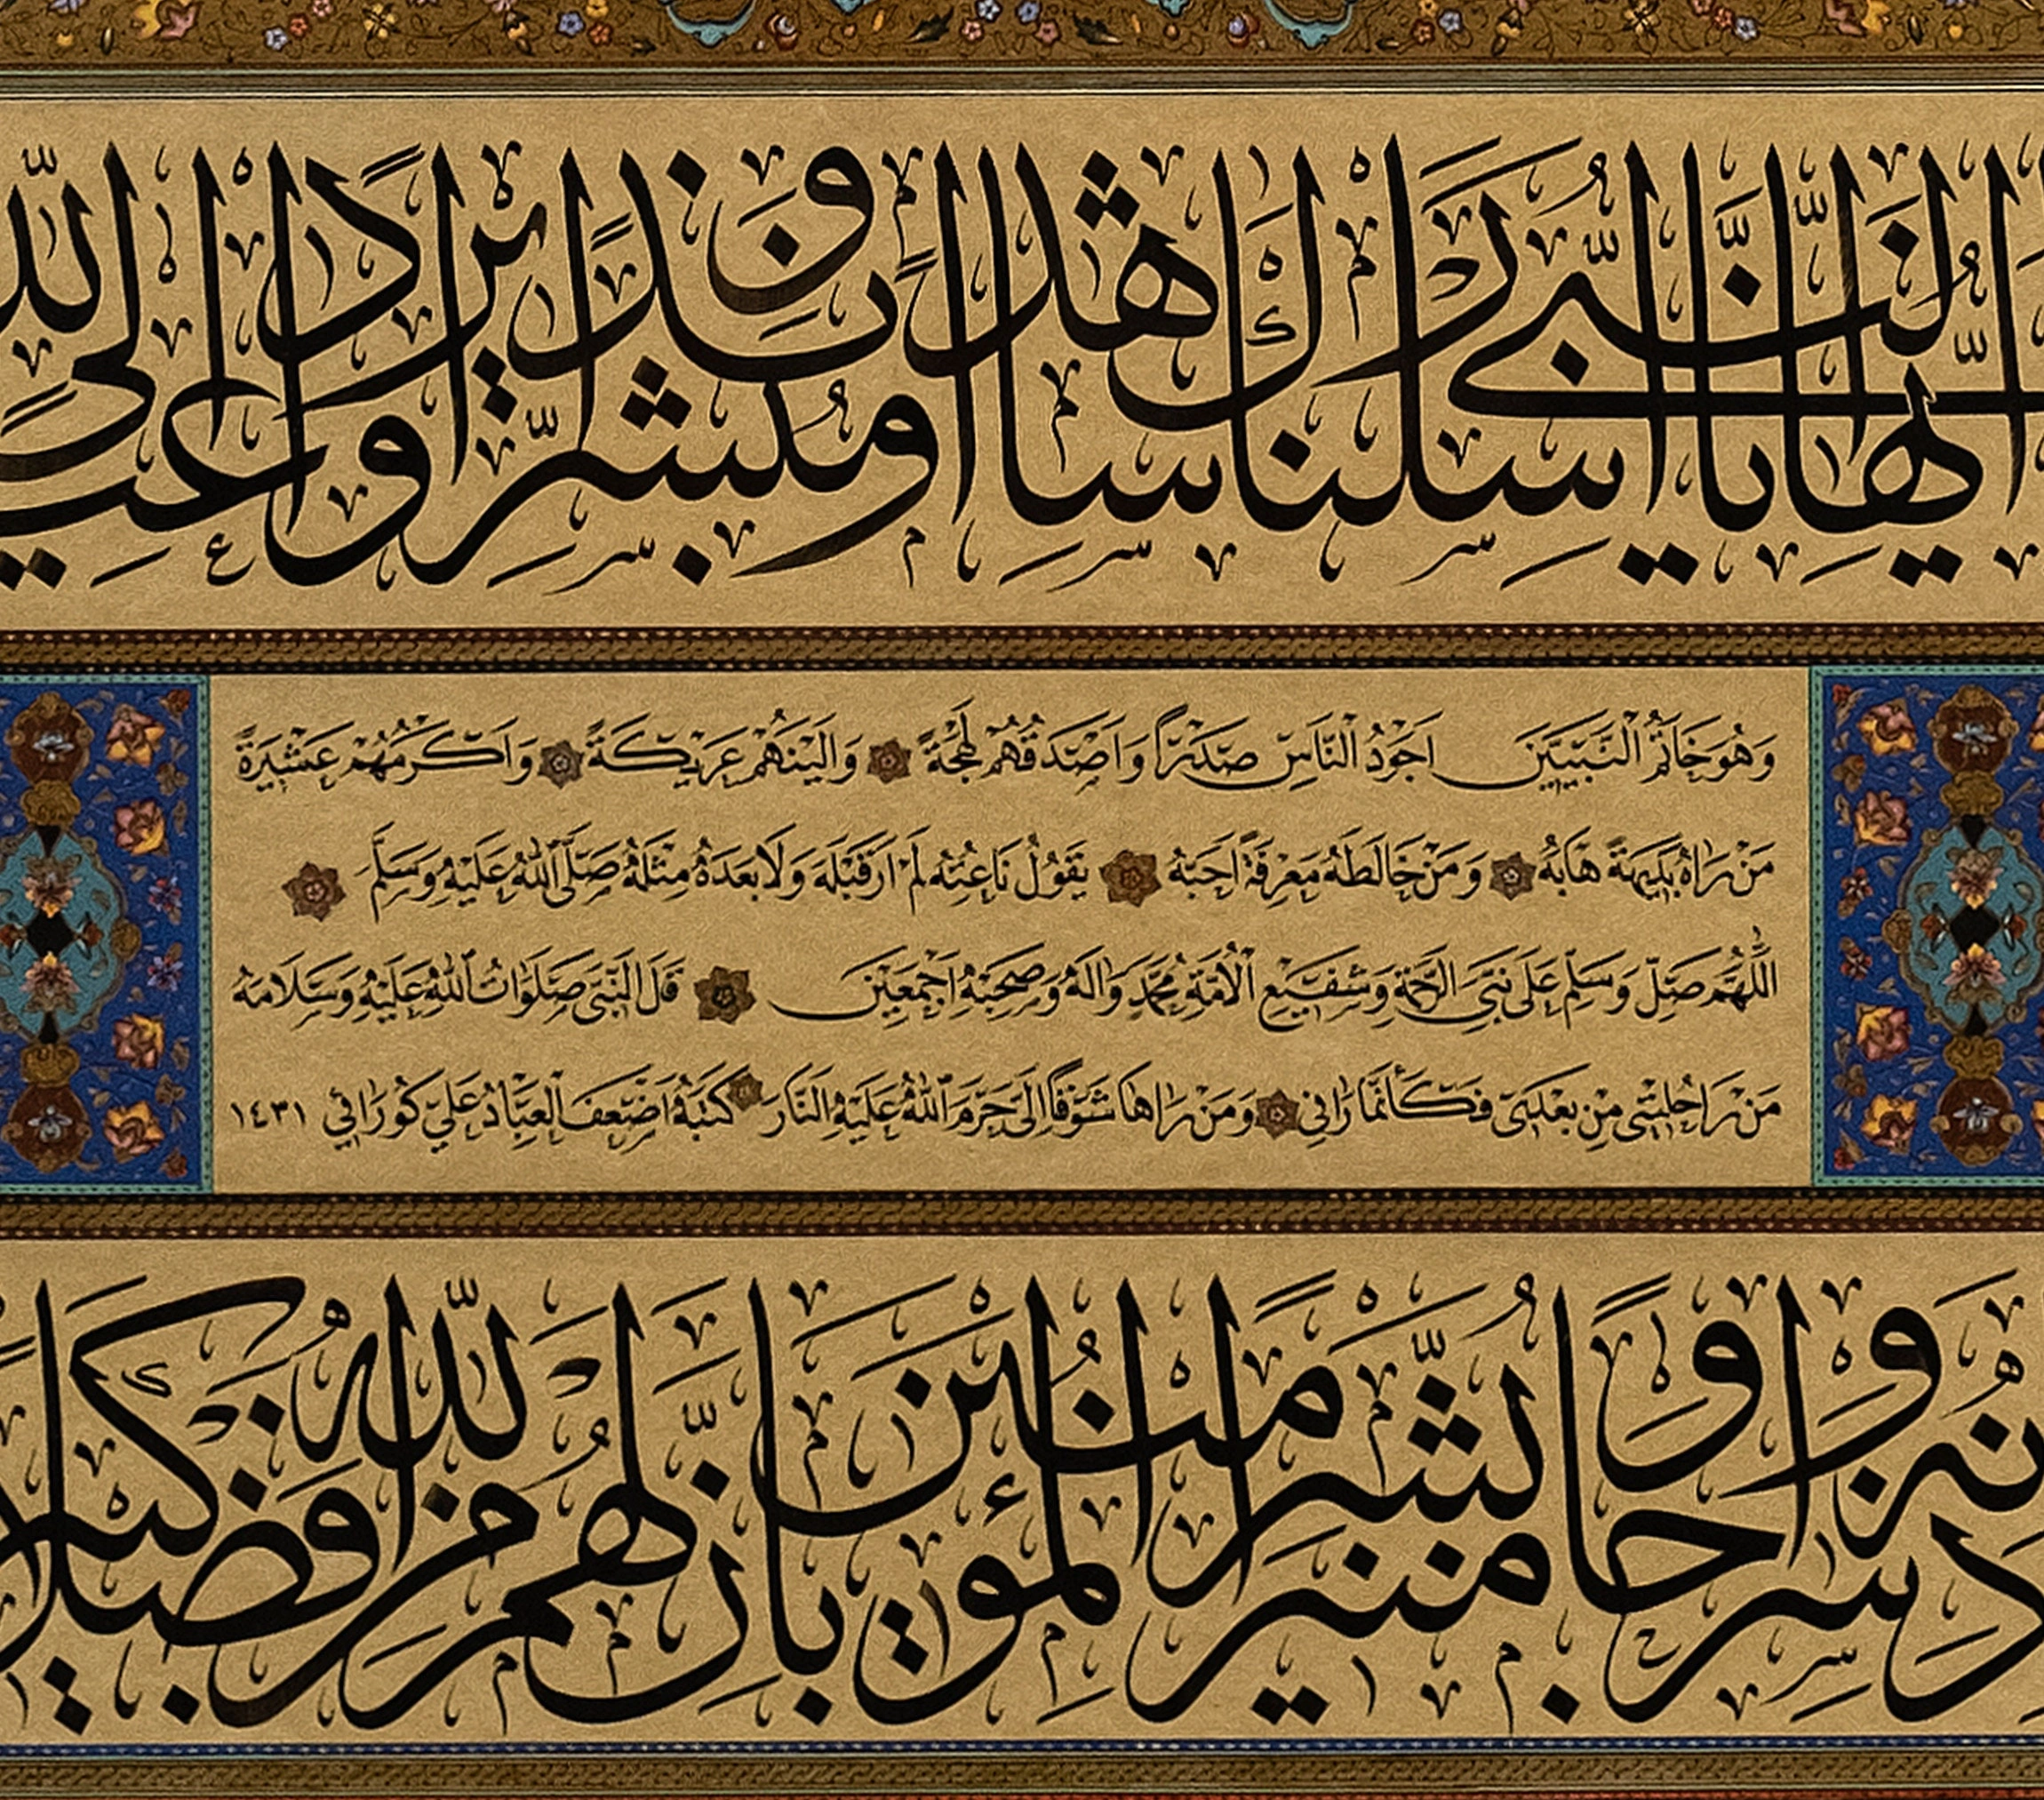 يا أيها النبي إنا أرسلناك شاهدا ومبشرا ونذيرا وداعيا إلى الله
وَهُوَ خَاتَمُ النَّبِيِّينَ اَجْوَدُ النَّاسِ صَدْرًا وَاَصْدَقُهُمْ لَهْجَةً وَاَلْيَنُهُمْ عَرِيكَةً وَاَكْرَمُهُمْ عَشِيرَةً
مَنْ رَاٰهُ بَدِيهَةً هَابَهُ وَمَنْ خَالَطَهُ مَعْرِفَةً اَحَبَّهُ يَقُولُ نَاعِتُهُ لَمْ اَرَ قَبْلَهُ وَلَا بَعْدَهُ مِثْلَهُ صَلَّى اللهُ عَلَيْهِ وَسَلَّمَ
اَللّٰهُمَّ صَلِّ وَسَلِّمْ عَلَى نَبِيِّ الرَّحْمَةِ وَشَفِيعِ الْاُمَّةِ مُحَمَّدٍ وَاٰلِهِ وَصَحْبِهِ اَجْمَعِينَ قَالَ النَّبِيُّ صَلَوَاتُ اللهِ عَلَيْهِ وَسَلَامُهُ
مَنْ رَاَ حُلْيَتِي مِنْ بَعْدِي فَكَأَنَّمَا رَاٰنِي وَمَنْ رَاٰهَا شَوْقًا اِلَيَّ حَرَّمَ اللهُ عَلَيْهِ النَّارَ كَتَبَهُ اَضْعَفُ الْعِبَادِ عَلِي كُورَانِي ١٤٣١
ذنه وسراجا منيرا وبشر المؤمنين بأن لهم من الله فضلا كبيرا